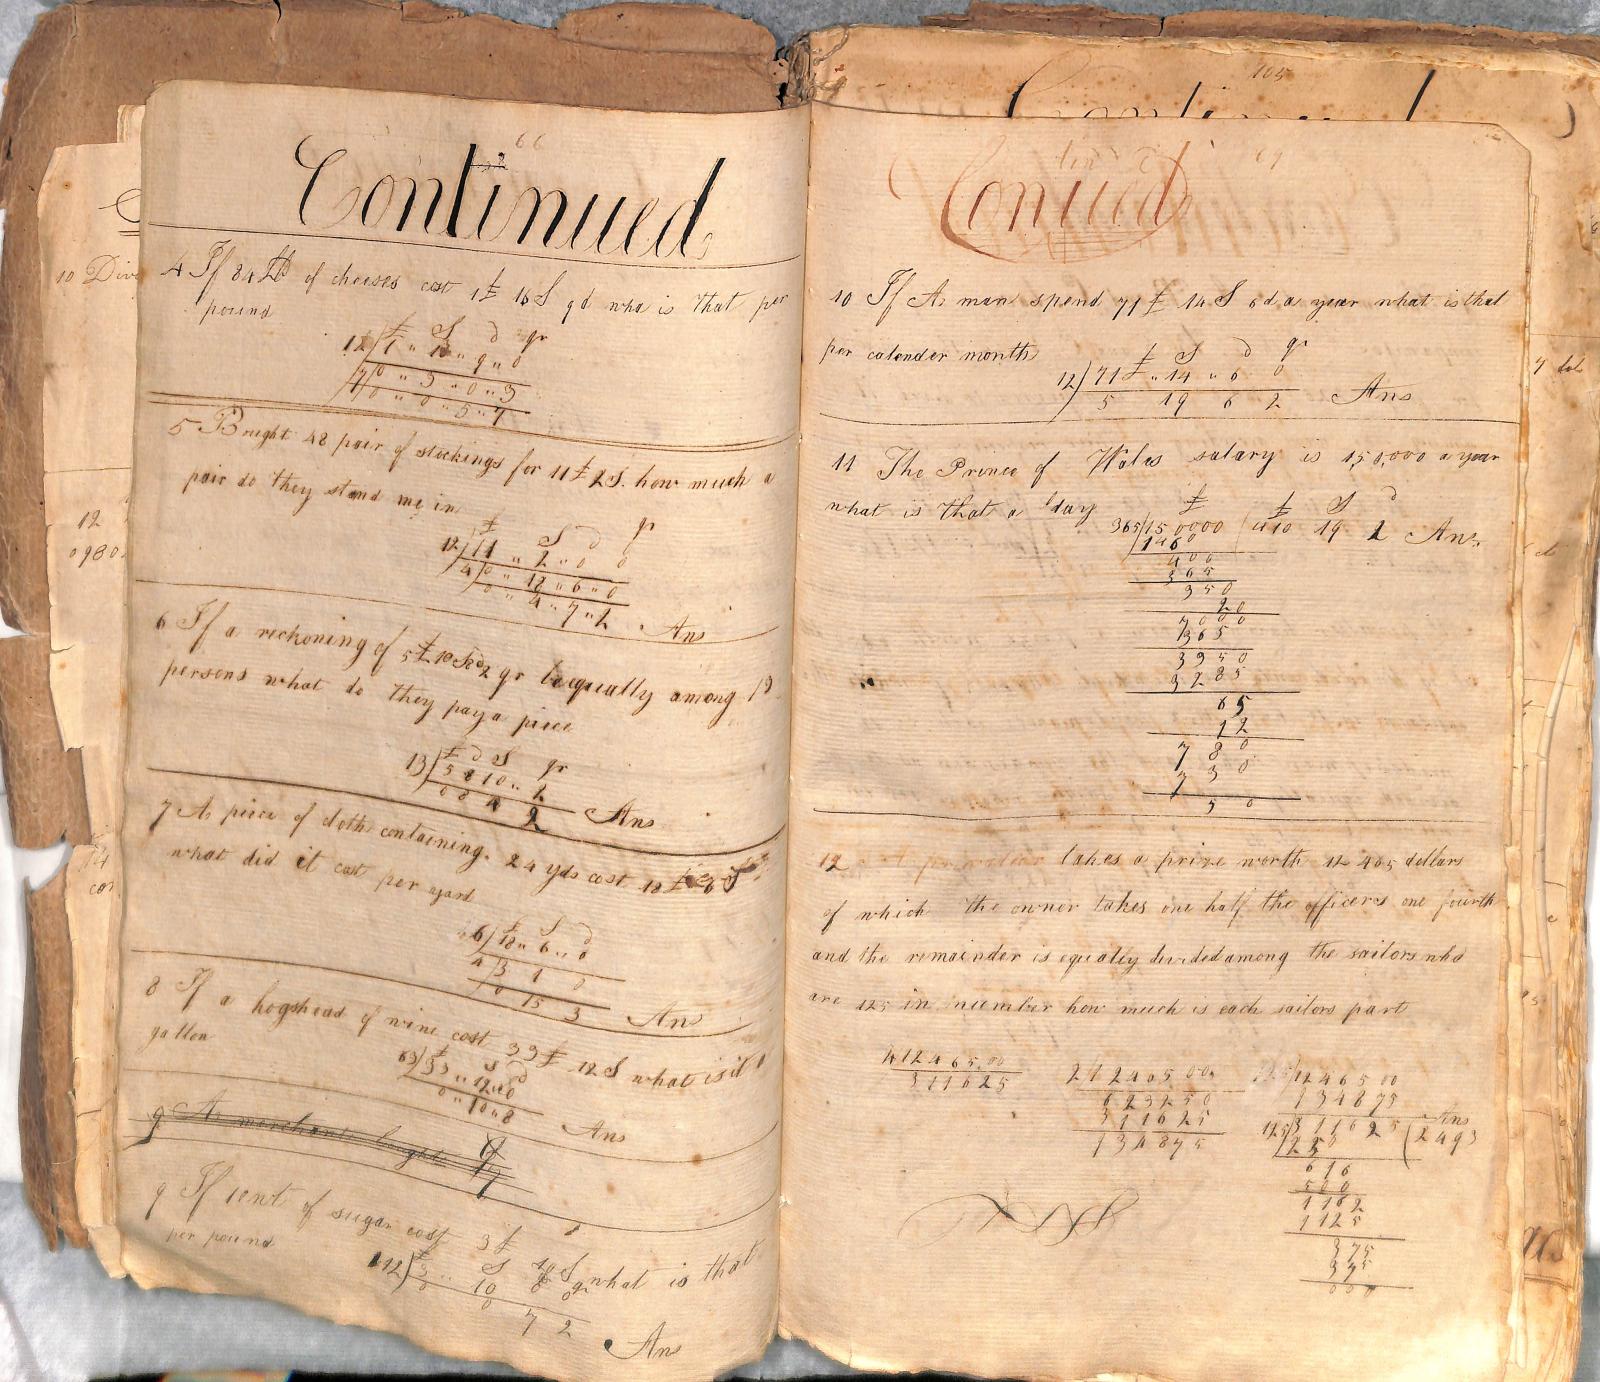 66
Continued
4 If 84 lb of cheeses cost 1£ 16S 9d wha is that per
pound
£ S d qr
12/1 " 16 " 9 " 0
7/0 " 3 " 0 " 3
0 " 0 " 5 " 1
5 Bought 48 pair of stockings for 11£ 2S. how much a
pair do they stand me in
£ S d qr
12/11 " 2 " 0 0
4/0 " 18 " 6 " 0
0 " 4 " 7 " 2 Ans
6 If a reckoning of 5£ 10S 8d 2 qr be equally among 13
persons what do they pay a piece
£ d S qr
13/5 8 10 " 2
0 8 4 2 Ans
7 A piece of cloth containing 24 yds cost 18£ 6 S
what did it cost per yard
£ S d
6/18 " 6 " 0
4/3 1 0
0 15 3 Ans
8 If a hogshead of wine cost 33£ 12S what is it
gallon
£ S d
63/33 " 12 " 0
0 " 10 " 8
Ans
9 A merchant bought
9 If 1 cent of sugar cost 3£ 10S what is that
per pound
£ S qr
112/3 " 10 0 0
0 0 7 2
Ans
105
Continued
67
tin
Conued
10 If A man spend 71£ 14S 6d a year what is that
per calender month
£ S d qr
12/71£ " 14 " 6 0
5 19 6 2 Ans
11 The Prince of Wales salary is 150,000 a year
what is that a day
£ £ S d
365/150000 (410 19 2 Ans.
1460
400
365
350
20
7000
365
3350
3285
65
12
780
730
50
12 A privateer takes a prize worth 12 465 dollars
of which the owner takes one half the officers one fourth
and the remainder is equally divided among the sailors who
are 125 in number how much is each sailors part
4 12465.00
311625
2/1246500
623250
311625
134875
1246500
134875
Ans
125/311625 (2493
250
616
500
1162
1125
375
375
000
10 Div
12